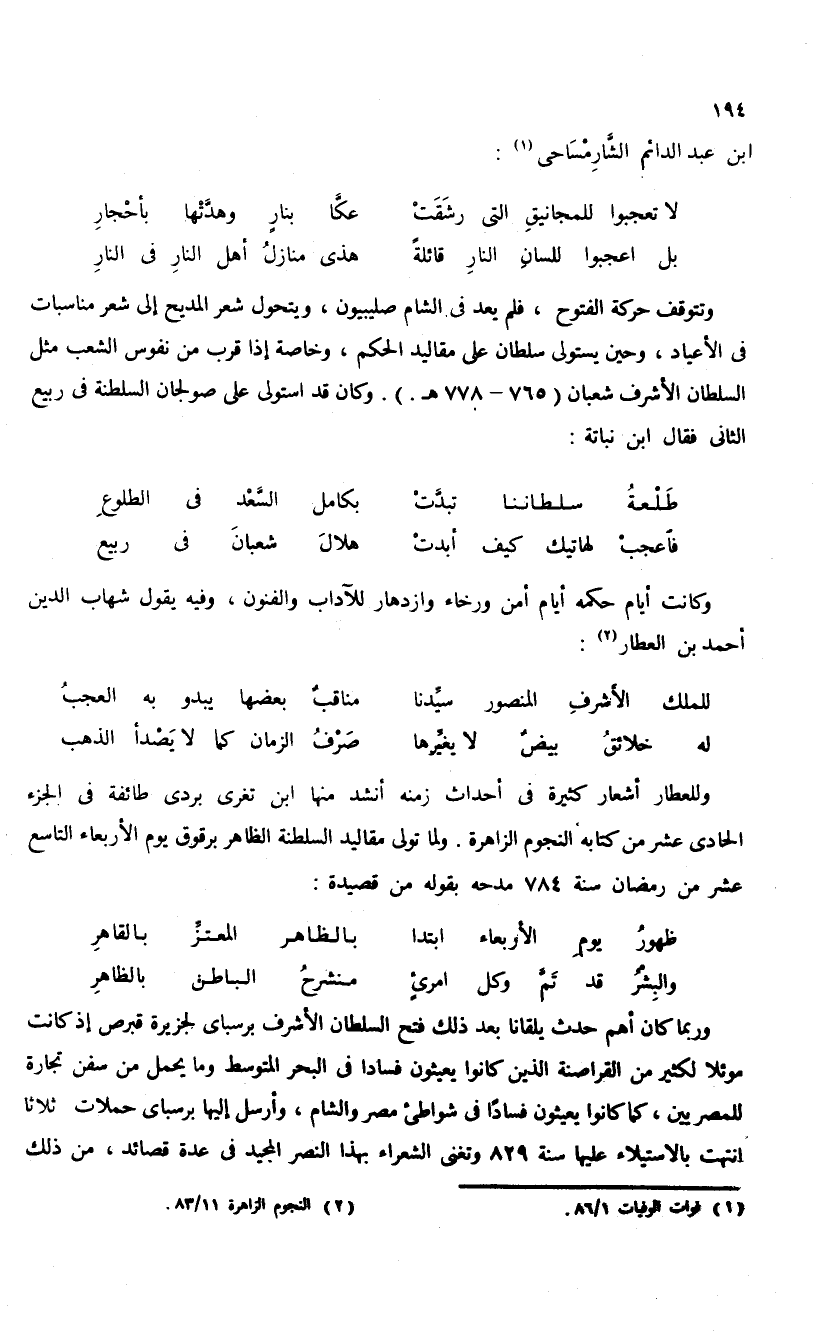 ١٩٤
ابن عبد الدائم الشَّارِمْسَاحى (١) :
لا تعجبوا للمجانيقِ التى رشَقَتْ عكَّا بنارٍ وهدَّتْها بأحْجارِ
بل اعجبوا للسانِ النارِ قائلةً هذى منازلُ أهل النارِ فى النارِ
وتتوقف حركة الفتوح ، فلم يعد فى الشام صليبيون ، ويتحول شعر المديح إلى شعر مناسبات
فى الأعياد ، وحين يستولى سلطان على مقاليد الحكم ، وخاصة إذا قرب من نفوس الشعب مثل
السلطان الأشرف شعبان ( ٧٦٥ – ٧٧٨ هـ . ) . وكان قد استولى على صولجان السلطنة فى ربيع
الثانى فقال ابن نباتة :
طَلْعةُ سلطاننا تبدَّتْ بكامل السَّعْد فى الطلوعِ
فآعجبْ لهاتيك كيف أبدتْ هلالَ شعبانَ فى ربيع
وكانت أيام حكمه أيام أمن ورخاء وازدهار للآداب والفنون ، وفيه يقول شهاب الدين
أحمد بن العطار (٢) :
للملك الأشرفِ المنصور سيِّدنا مناقبٌ بعضها يبدو به العجبُ
له خلائقُ بيضٌ لا يغيِّرها صَرْفُ الزمان كما لا يَصْدأ الذهب
وللعطار أشعار كثيرة فى أحداث زمنه أنشد منها ابن تغرى بردى طائفة فى الجزء
الحادى عشر من كتابه النجوم الزاهرة . ولما تولى مقاليد السلطنة الظاهر برقوق يوم الأربعاء التاسع
عشر من رمضان سنة ٧٨٤ مدحه بقوله من قصيدة :
ظهورُ يومِ الأربعاء ابتدا بالظاهر المعتزِّ بالقاهرِ
والبِشْرُ قد تَمَّ وكل امرئٍ منشرحُ الباطن بالظاهرِ
وربما كان أهم حدث يلقانا بعد ذلك فتح السلطان الأشرف برسباى لجزيرة قبرص إذ كانت
موئلا لكثير من القراصنة الذين كانوا يعيثون فسادا فى البحر المتوسط وما يحمل من سفن تجارة
للمصريين ، كما كانوا يعيثون فسادًا فى شواطئ مصر والشام ، وأرسل إليها برسباى حملات ثلاثا
انتهت بالاستيلاء عليها سنة ٨٢٩ وتغنى الشعراء بهذا النصر المجيد فى عدة قصائد ، من ذلك
(١) فوات الوفيات ٨٦/١. (٢) النجوم الزاهرة ٨٣/١١.